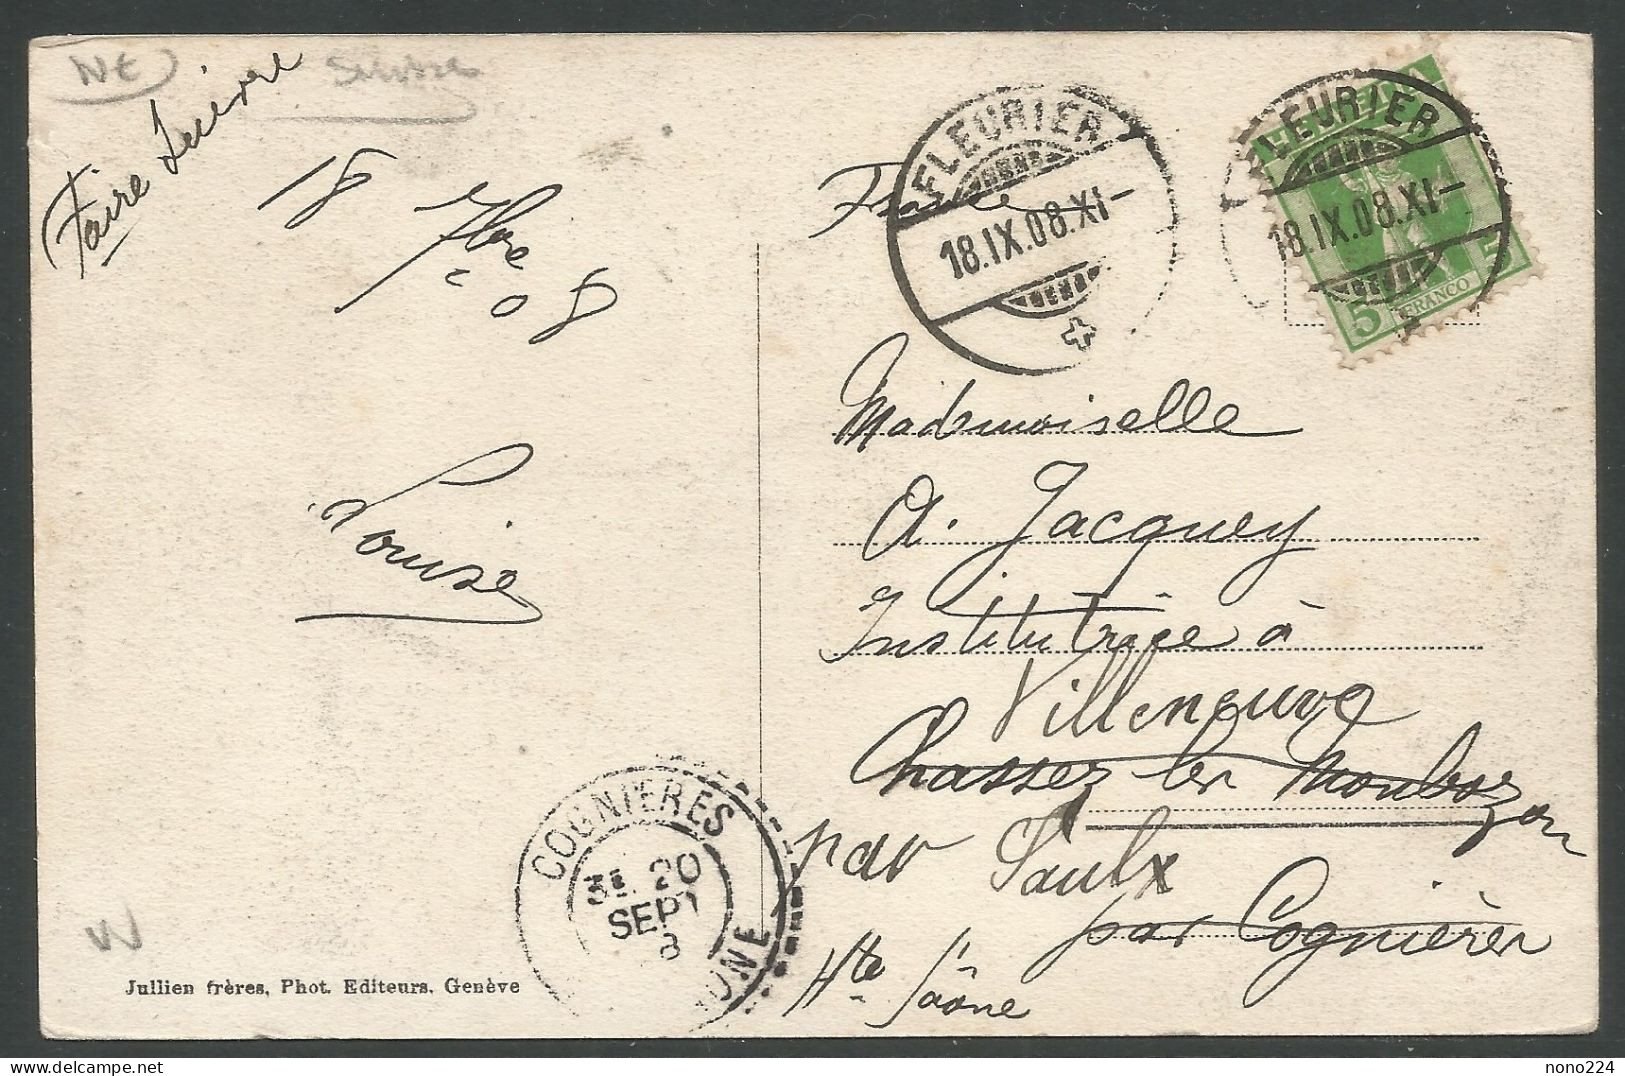 NE
Suisse
Faire Suivre
18 7bre 08
Louise
France
FLEURIER
18.IX.08.XI-
HELVETIA
FLEURIER
18.IX.08.XI-
5 FRANCO 5
Mademoiselle
A. Jacquey
Institutrice à
Villeneuve
Chassey les Montbozon
par Saulx
par Cognières
Hte Saône
COGNIERES
3E 20
SEPT
8
SAONE
Jullien frères, Phot. Editeurs, Genève
nono224